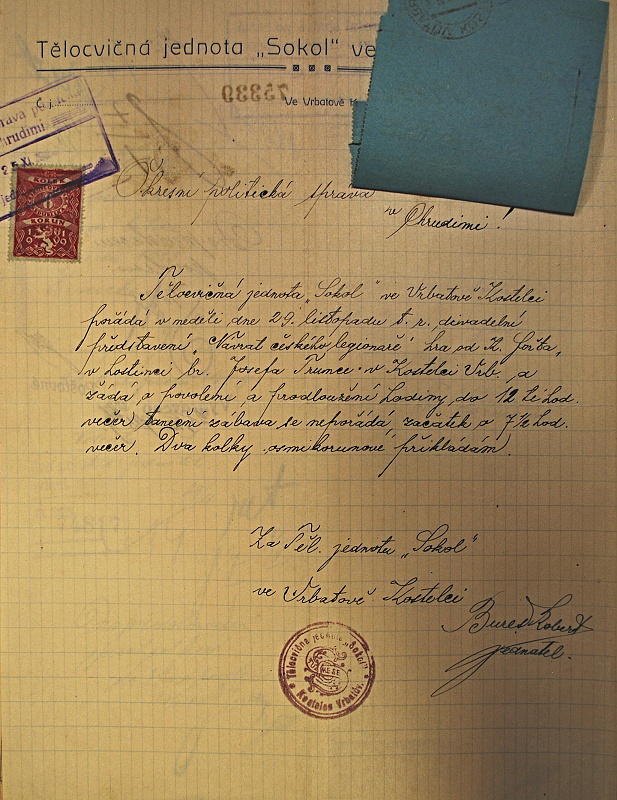 Tělocvičná jednota „Sokol" ve
Č. j.
Ve Vrbatově
Chrudimi
25. XI.
KOLEK
8
ROKU
1919
Okresní politická správa
v Chrudimi!
Tělocvičná jednota „Sokol" ve Vrbatově Kostelci
pořádá v neděli dne 29. listopadu t. r. divadelní
představení „Návrat českého legionáře" hra od K. Fořta,
v hostinci br. Josefa Trunce v Kostelci Vrb. a
žádá o povolení a prodloužení hodiny do 12 té hod.
večer, taneční zábava se nepořádá, začátek o 7½ hod.
večer. Dva kolky osmikorunové přikládám.
Za Těl. jednotu „Sokol"
ve Vrbatově Kostelci
Bureš Robert
jednatel.
Tělocvičná jednota „Sokol"
Kostelec Vrbatův